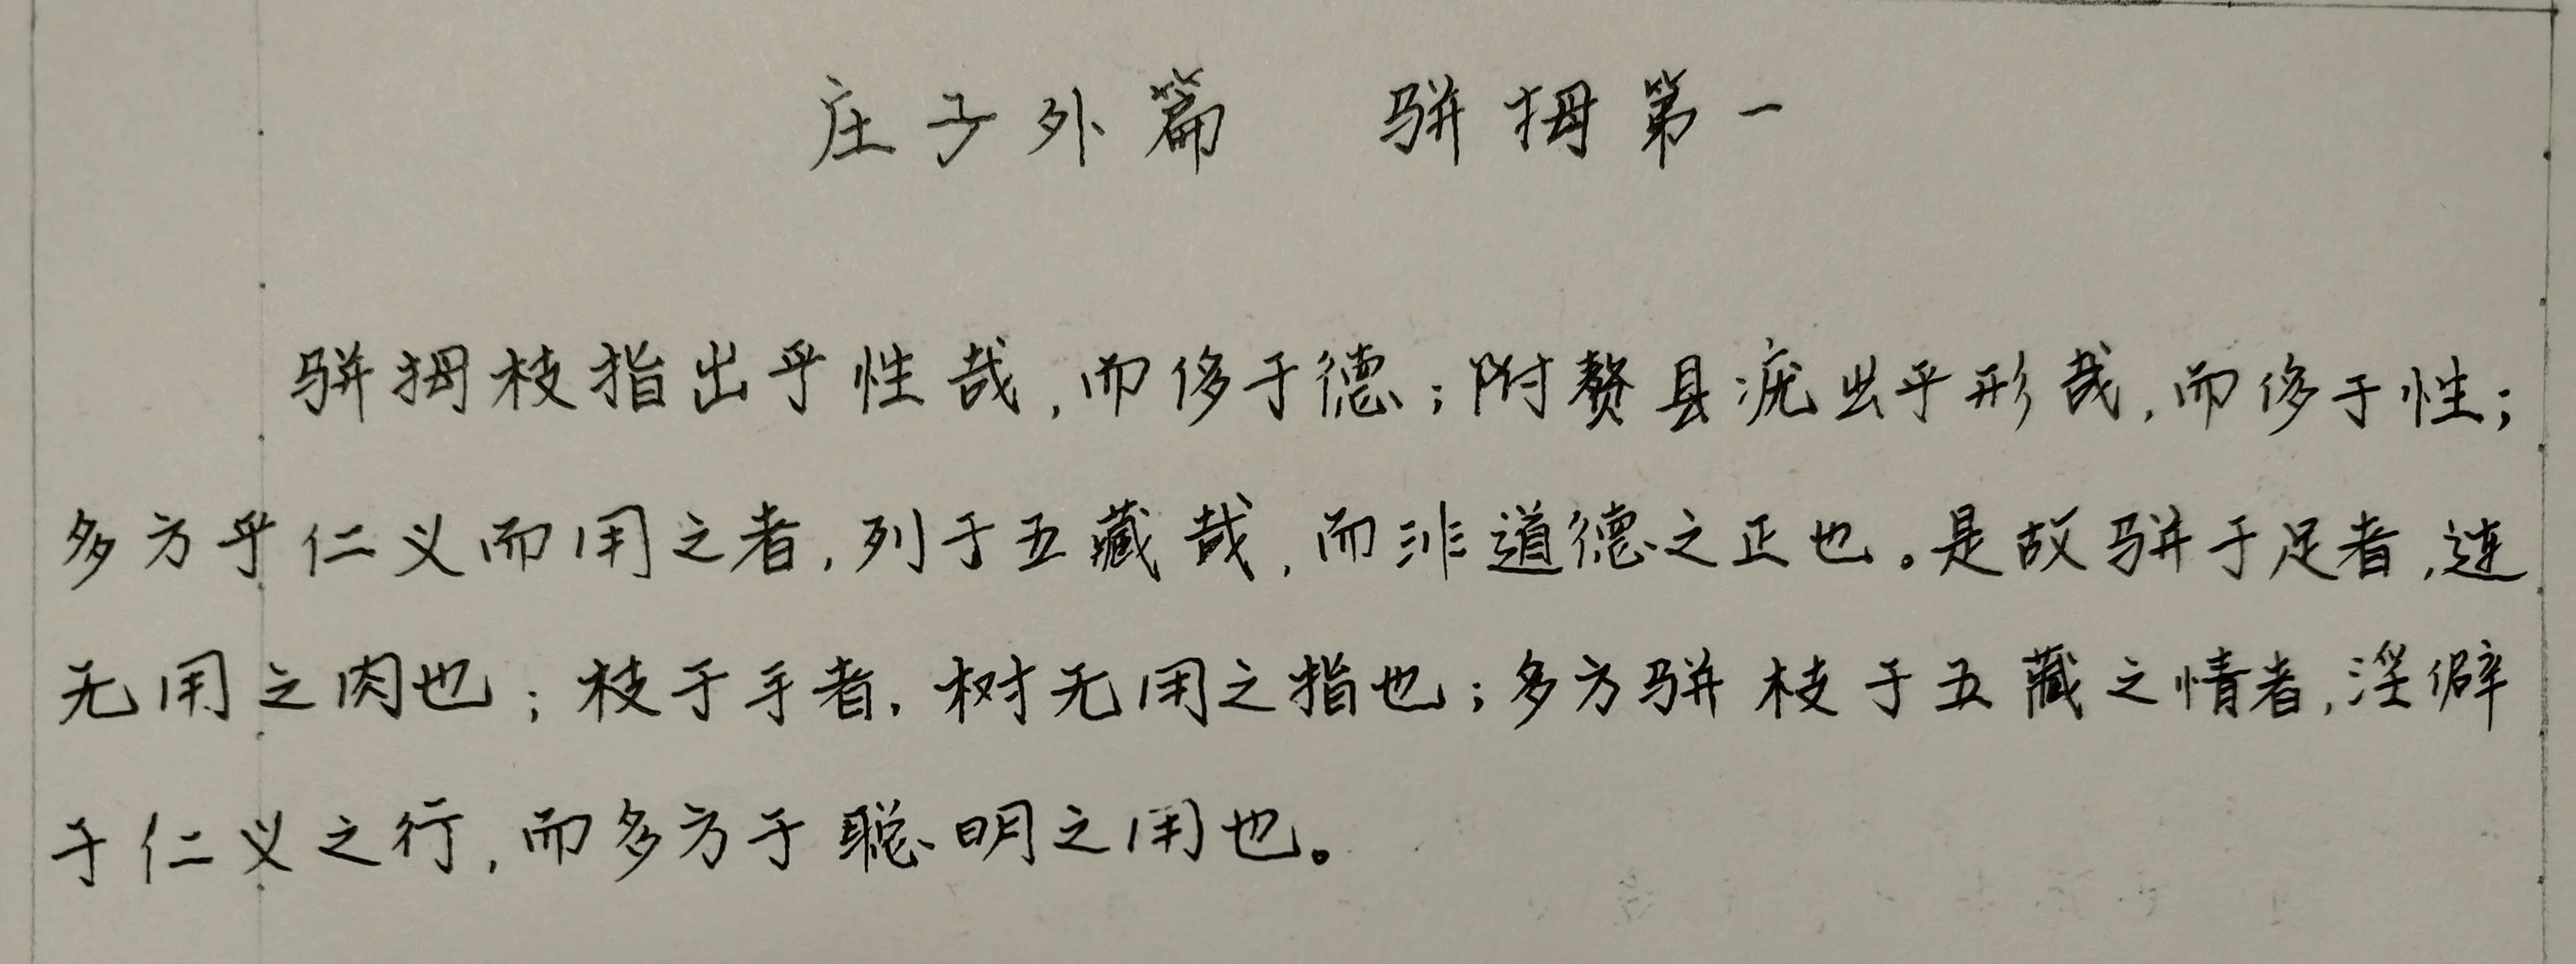 庄子外篇 骈拇第一
骈拇枝指出乎性哉，而侈于德；附赘县疣出乎形哉，而侈于性；
多方乎仁义而用之者，列于五藏哉，而非道德之正也。是故骈于足者，连
无用之肉也；枝于手者，树无用之指也；多方骈枝于五藏之情者，淫僻
于仁义之行，而多方于聪明之用也。